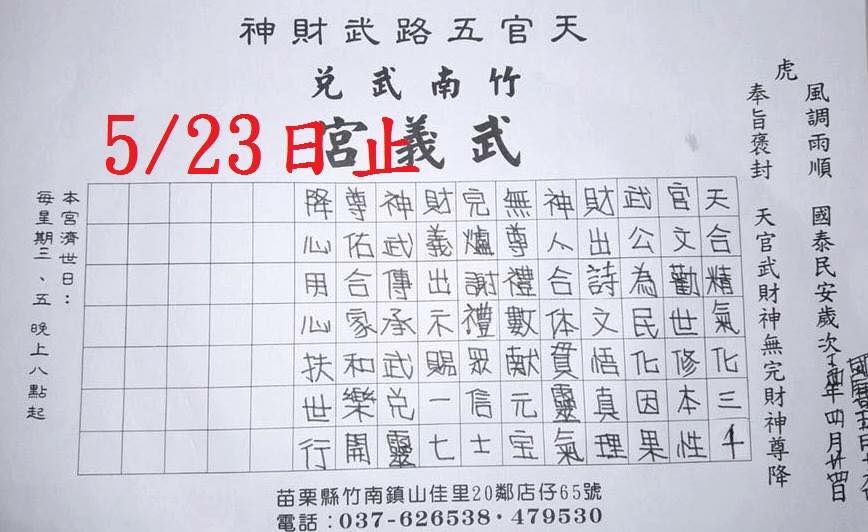 天官五路武財神
竹南武兌
武義宮
5/23日止
虎
風調雨順 國泰民安歲次丁酉年四月廿四日
奉旨褒封 天官武財神無完財神尊降
天合精氣化三千
官文勸世修本性
武公為民化因果
財出詩文悟真理
神人合体貫靈氣
無尊禮數献元宝
完爐謝禮眾信士
財義出示賜一七
神武傳承武兌靈
尊佑合家和樂開
降心用心扶世行
本宮濟世日：
每星期三、五 晚上八點起
苗栗縣竹南鎮山佳里20鄰店仔65號
電話：037-626538・479530